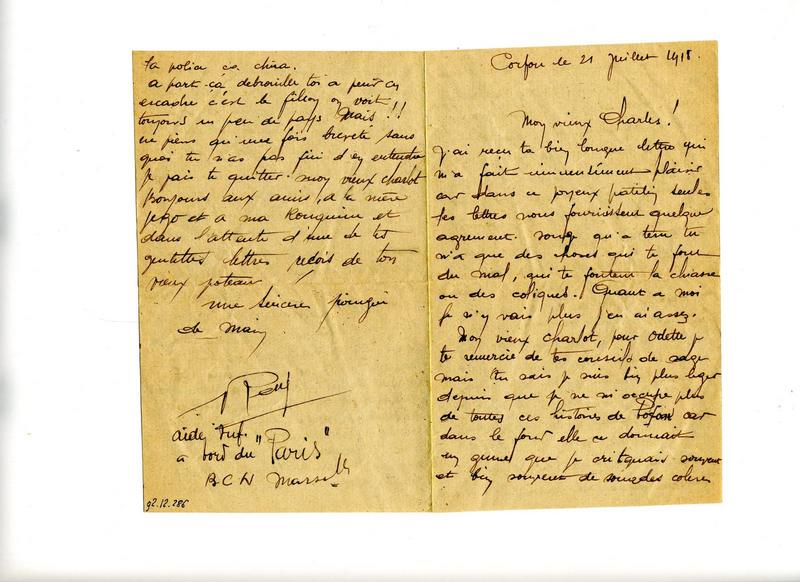 Corfou le 21 Juillet 1918.
Mon vieux Charles!
J'ai reçu ta bien longue lettre qui
m'a fait immensément plaisir
car dans ce joyeux patelin seules
les lettres vous fournissent quelque
agrément. Songe qu'a terre tu
n'a que des choses qui te font
du mal, qui te foutent la chiasse
ou des coliques. Quant a moi
je n'y vais plus j'en ai assez.
Mon vieux charlot, pour Odette je
te remercie de tes conseils de sage
mais tu sais je suis bien plus léger
depuis que je ne m'occupe plus
de toutes ces histoires de car
dans le fond elle ce donnait
un genre que je critiquais souvent
et bien souvent de sourdes coleres
la police ce china.
a part ça, debrouille toi a
encadre c'est le filon on voit
toujours un peu de pays Mais!!
ne piens qu'une fois breveté sans
quoi tu n'as pas fini d'en entendre
je vais te quitter mon vieux charlot
Bonjours aux amis, a la mère
et a ma Rouquine et
dans l'attente d'une de tes
gentilles lettres reçois de ton
vieux poteau!
une sincère poignée
de main
aide Inf.
a bord du "Paris"
B.C.N Marseille
92.12.286